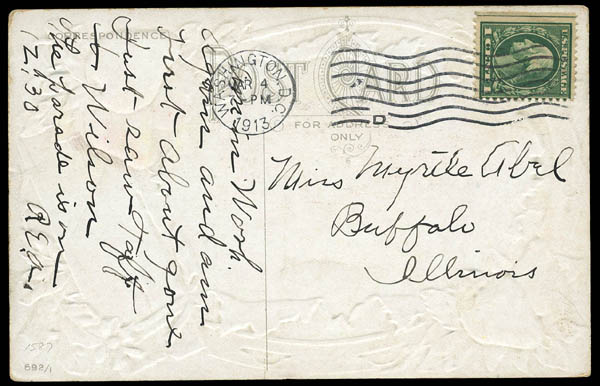 CORRESPONDENCE
POST CARD
FOR ADDRESS
ONLY
WASHINGTON, D.C.
MAR 4
PM
1913
D
U.S. POSTAGE
1 CENT 1
Am in Wash
again and am
just about gone
Just saw Taft
& Wilson
The parade is on
at 12,30
Miss Myrtle Abel
Buffalo
Illinois
1527
692/1